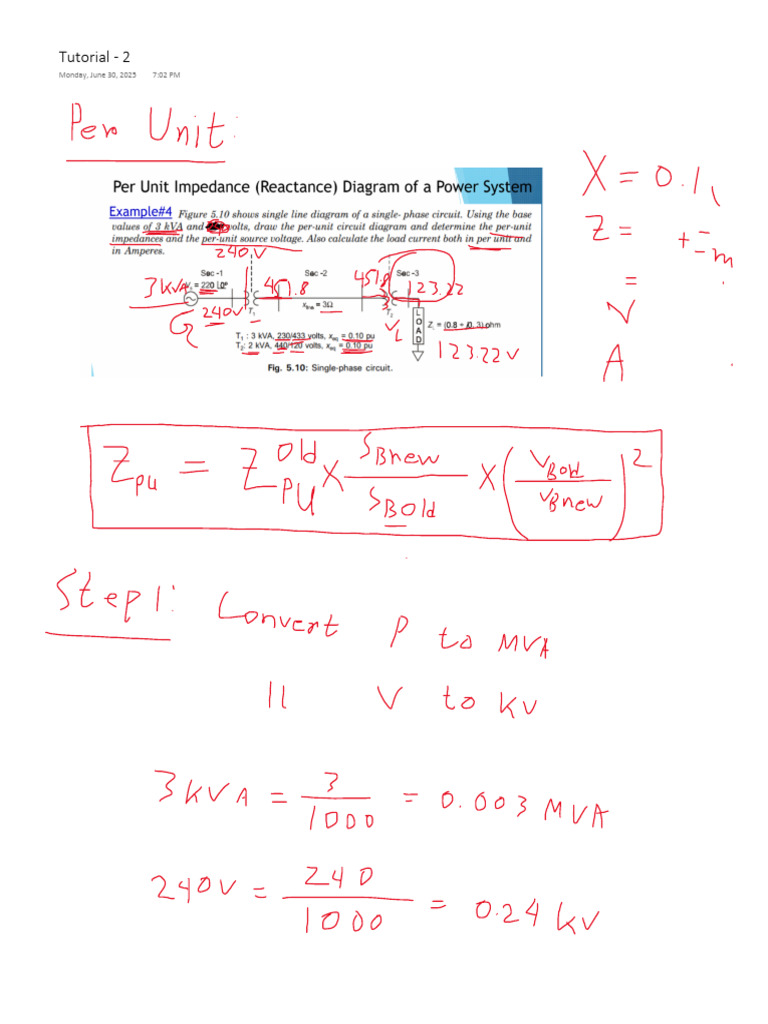 Tutorial - 2
Monday, June 30, 2025 7:02 PM
Per Unit:
Per Unit Impedance (Reactance) Diagram of a Power System
Example#4 Figure 5.10 shows single line diagram of a single- phase circuit. Using the base
values of 3 kVA and volts, draw the per-unit circuit diagram and determine the per-unit
impedances and the per-unit source voltage. Also calculate the load current both in per unit and
in Amperes.
240 V
Sec -1 Sec -2 Sec -3
3 KVA = 220 L0° 457.8 457.8 123.22
240V T₁ xline = 3Ω T₂
G VL
LOAD
ZL = (0.8 + j0. 3) ohm
T₁ : 3 kVA, 230/433 volts, xeq = 0.10 pu
T₂: 2 kVA, 440/120 volts, xeq = 0.10 pu
123.22 V
Fig. 5.10: Single-phase circuit.
X = 0.1
Z = + - m
=
V
A
Zpu = ZPU Old x SBnew / SBold x (VBold / VBnew)²
Step1: Convert P to MVA
11 V to KV
3 KVA = 3/1000 = 0.003 MVA
240V = 240/1000 = 0.24 KV